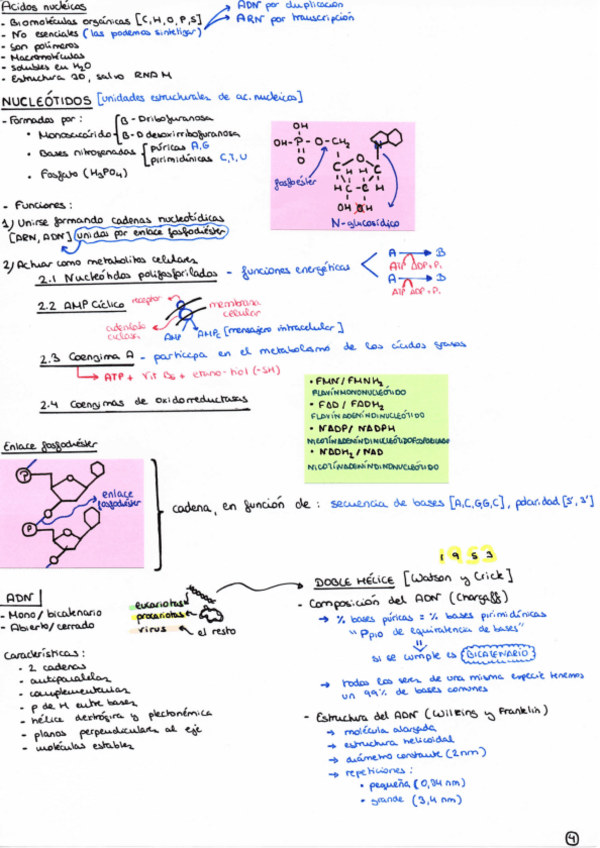 Ácidos nucleicos
- Biomoléculas orgánicas [C, H, O, P, S]
- No esenciales (las podemos sintetizar)
ADN por duplicación
ARN por transcripción
- Son polímeros
- Macromoléculas
- Solubles en H2O
- Estructura 3D, salvo RNA M
NUCLEÓTIDOS [unidades estructurales de ac. nucleicos]
- Formados por:
• Monosacárido
β - D ribofuranosa
β - D desoxirribofuranosa
• Bases nitrogenadas
púricas A, G
pirimidínicas C, T, U
• Fosfato (H3PO4)
OH
OH-P-O-CH2
O
fosfoéster
N
O
C
H
H C - C H
OH OH
N-glucosídico
- Funciones:
1) Unirse formando cadenas nucleotídicas
[ARN, ADN] unidas por enlace fosfodiéster
2) Actuar como metabolitos celulares
2.1 Nucleótidos polifosforilados - funciones energéticas
A → B
ATP ADP + Pi
A → B
ATP ADP + Pi
2.2 AMP Cíclico
receptor
membrana
celular
adenilato
ciclasa
AMP
AMPc [mensajero intracelular]
2.3 Coenzima A - participa en el metabolismo de los ácidos grasos
ATP + Vit B5 + etano-tiol (-SH)
2.4 Coenzimas de oxidorreductasas
• FMN / FMNH2
FLAVÍN MONONUCLEÓTIDO
• FAD / FADH2
FLAVÍNADENÍNDINUCLEÓTIDO
• NADP / NADPH
NICOTÍNADENÍNDINUCLEÓTIDOFOSFORILADO
• NADH2 / NAD
NICOTÍNADENÍNDINUCLEÓTIDO
Enlace fosfodiéster
P
enlace
fosfodiéster
P
cadena, en función de: secuencia de bases [A,C,G,G,C], polaridad [5', 3']
1953
ADN
- Mono / bicatenario
- Abierto / cerrado
eucariotas
procariotas
virus
el resto
Características:
- 2 cadenas
- antiparalelas
- complementarias
- p de H entre bases
- hélice dextrógira y plectonémica
- planos perpendiculares al eje
- moléculas estables
DOBLE HÉLICE [Watson y Crick]
- Composición del ADN (Chargaff)
→ % bases púricas = % bases pirimidínicas
"Ppio de equivalencia de bases"
si se cumple es BICATENARIO
→ todos los seres de una misma especie tenemos
un 99% de bases comunes
- Estructura del ADN (Wilkins y Franklin)
→ molécula alargada
→ estructura helicoidal
→ diámetro constante (2nm)
→ repeticiones:
• pequeña (0,34 nm)
• grande (3,4 nm)
4